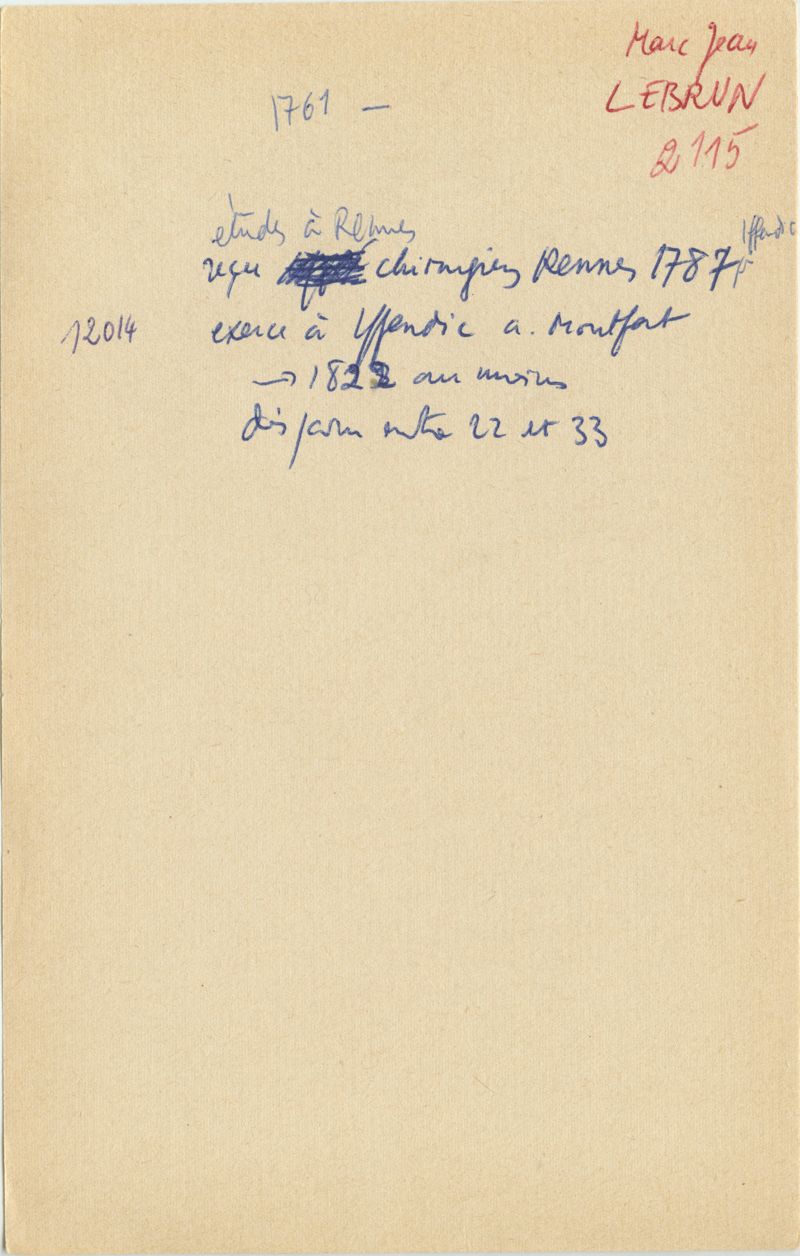 Marc Jean
LEBRUN
2115
1761 —
études à Rennes
reçu chirurgien Rennes 1787 pr Iffendic
12014 exerce à Iffendic a. Montfort
→ 1822 au moins
disparu entre 22 et 33